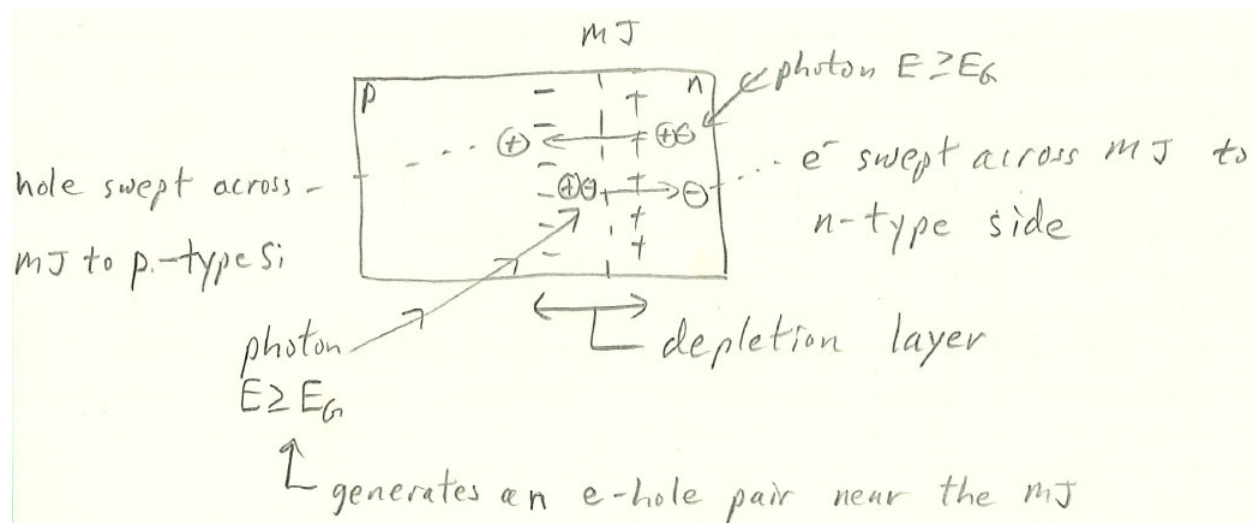 mJ
p
n
photon E ≥ EG
hole swept across
mJ to p-type Si
e⁻ swept across mJ to
n-type side
photon
E ≥ EG
depletion layer
generates an e-hole pair near the mJ